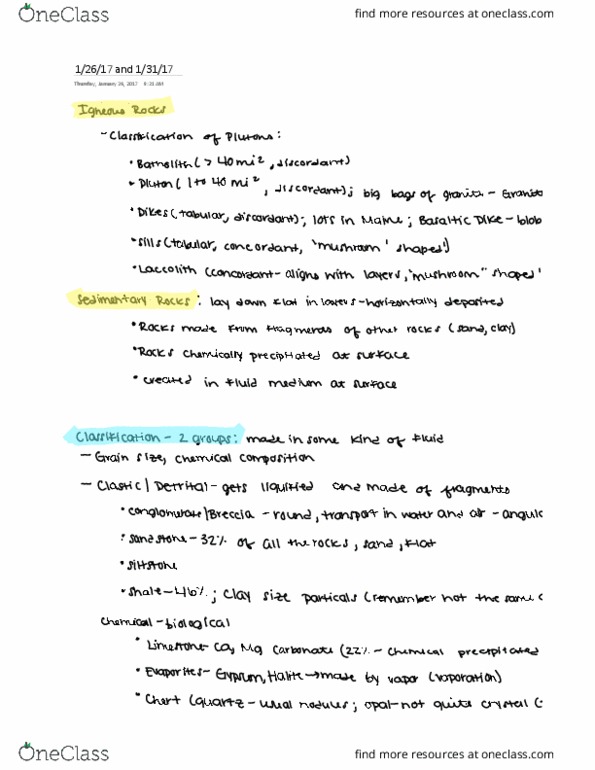 OneClass
find more resources at oneclass.com
1/26/17 and 1/31/17
Thursday, January 26, 2017 8:31 AM
Igneous Rocks
- Classification of Plutons:
• Batholith ( > 40 mi², discordant)
• Pluton ( 1 to 40 mi², discordant); big bags of granite - Granito
• Dikes (tabular, discordant); lots in Maine; Basaltic Dike - blob
• Sills (tabular, concordant, 'mushroom' shaped')
• Laccolith (concordant - aligns with layers, "mushroom" shaped'
Sedimentary Rocks: lay down flat in layers - horizontally deposited
• Rocks made from fragments of other rocks (sand, clay)
• Rocks chemically precipitated at surface
• created in fluid medium at surface
Classification - 2 groups: made in some kind of fluid
- Grain size, chemical composition
- Clastic / Detrital - gets liquified and made of fragments
• conglomerate/Breccia - round, transport in water and air - angula
• sandstone - 32% of all the rocks, sand, flat
• siltstone
• shale - 46%; clay size particals (remember not the same (
chemical - biological
• Limestone - Ca, Mg Carbonate (22% - chemical precipitated
• Evaporites - Gypsum, Halite → made by vapor (vaporation)
• Chert (quartz - usual nodules; opal - not quite crystal (
OneClass
find more resources at oneclass.com